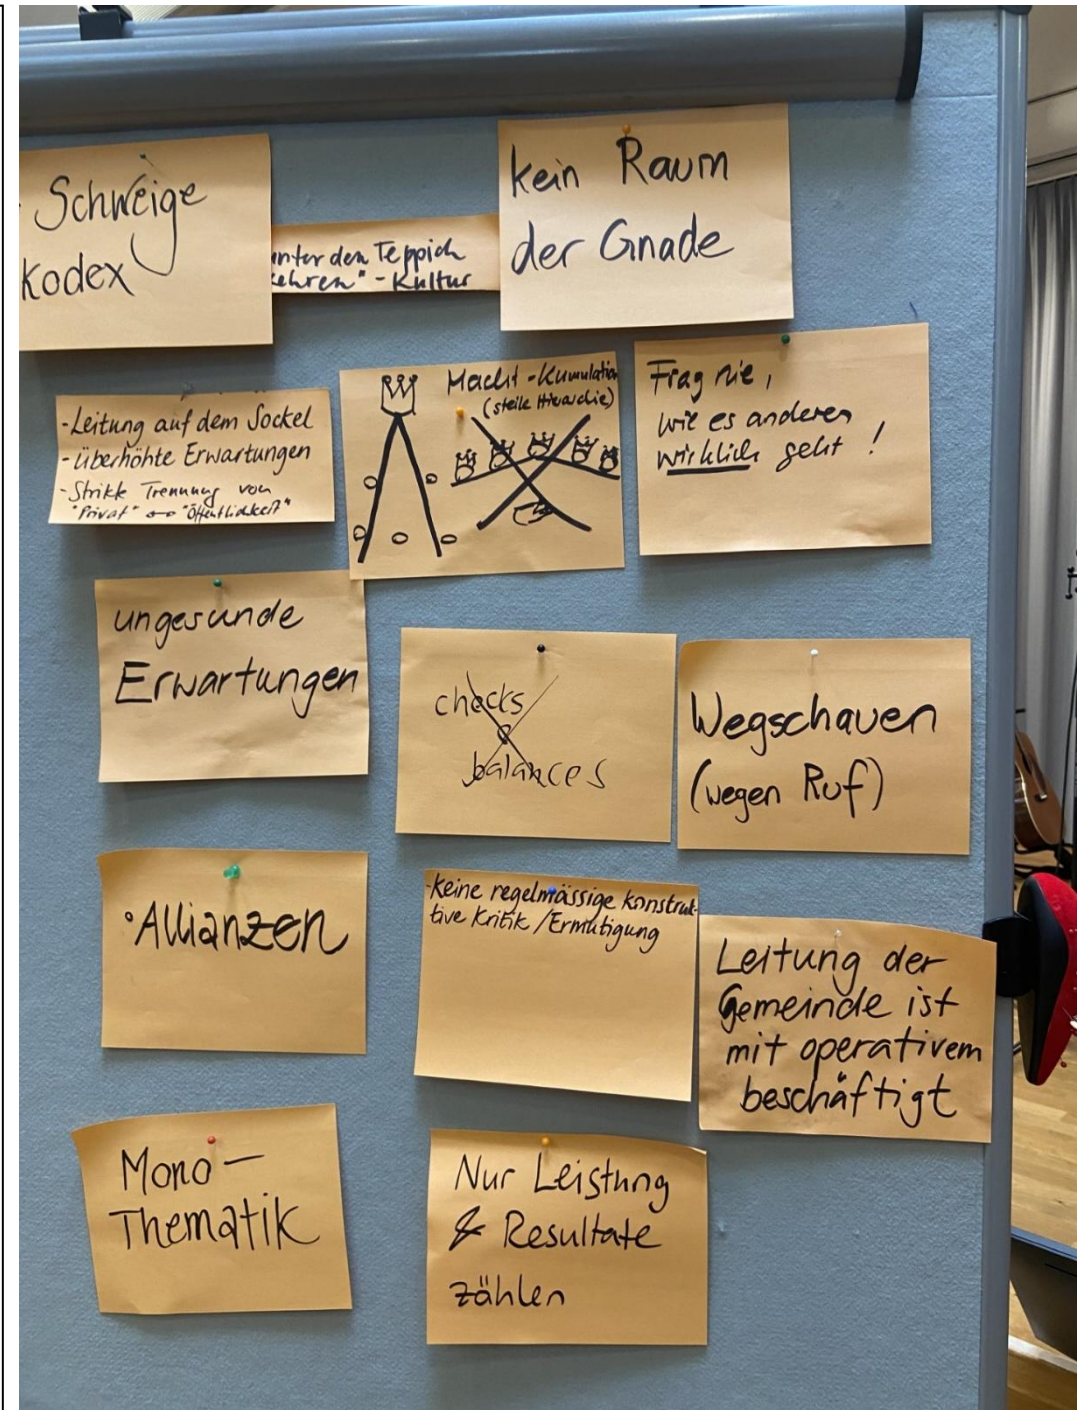 Schweige
Kodex
unter den Teppich
kehren" - Kultur
kein Raum
der Gnade
- Leitung auf dem Sockel
- Überhöhte Erwartungen
- Strikte Trennung von
"Privat" ↔ "Öffentlichkeit"
Macht - Kumulation
(steile Hierarchie)
Frag nie,
wie es anderen
wirklich geht !
ungesunde
Erwartungen
checks
&
balances
Wegschauen
(wegen Ruf)
• Allianzen
- keine regelmässige konstruk-
tive Kritik / Ermutigung
Leitung der
Gemeinde ist
mit operativem
beschäftigt
Mono -
Thematik
Nur Leistung
& Resultate
zählen